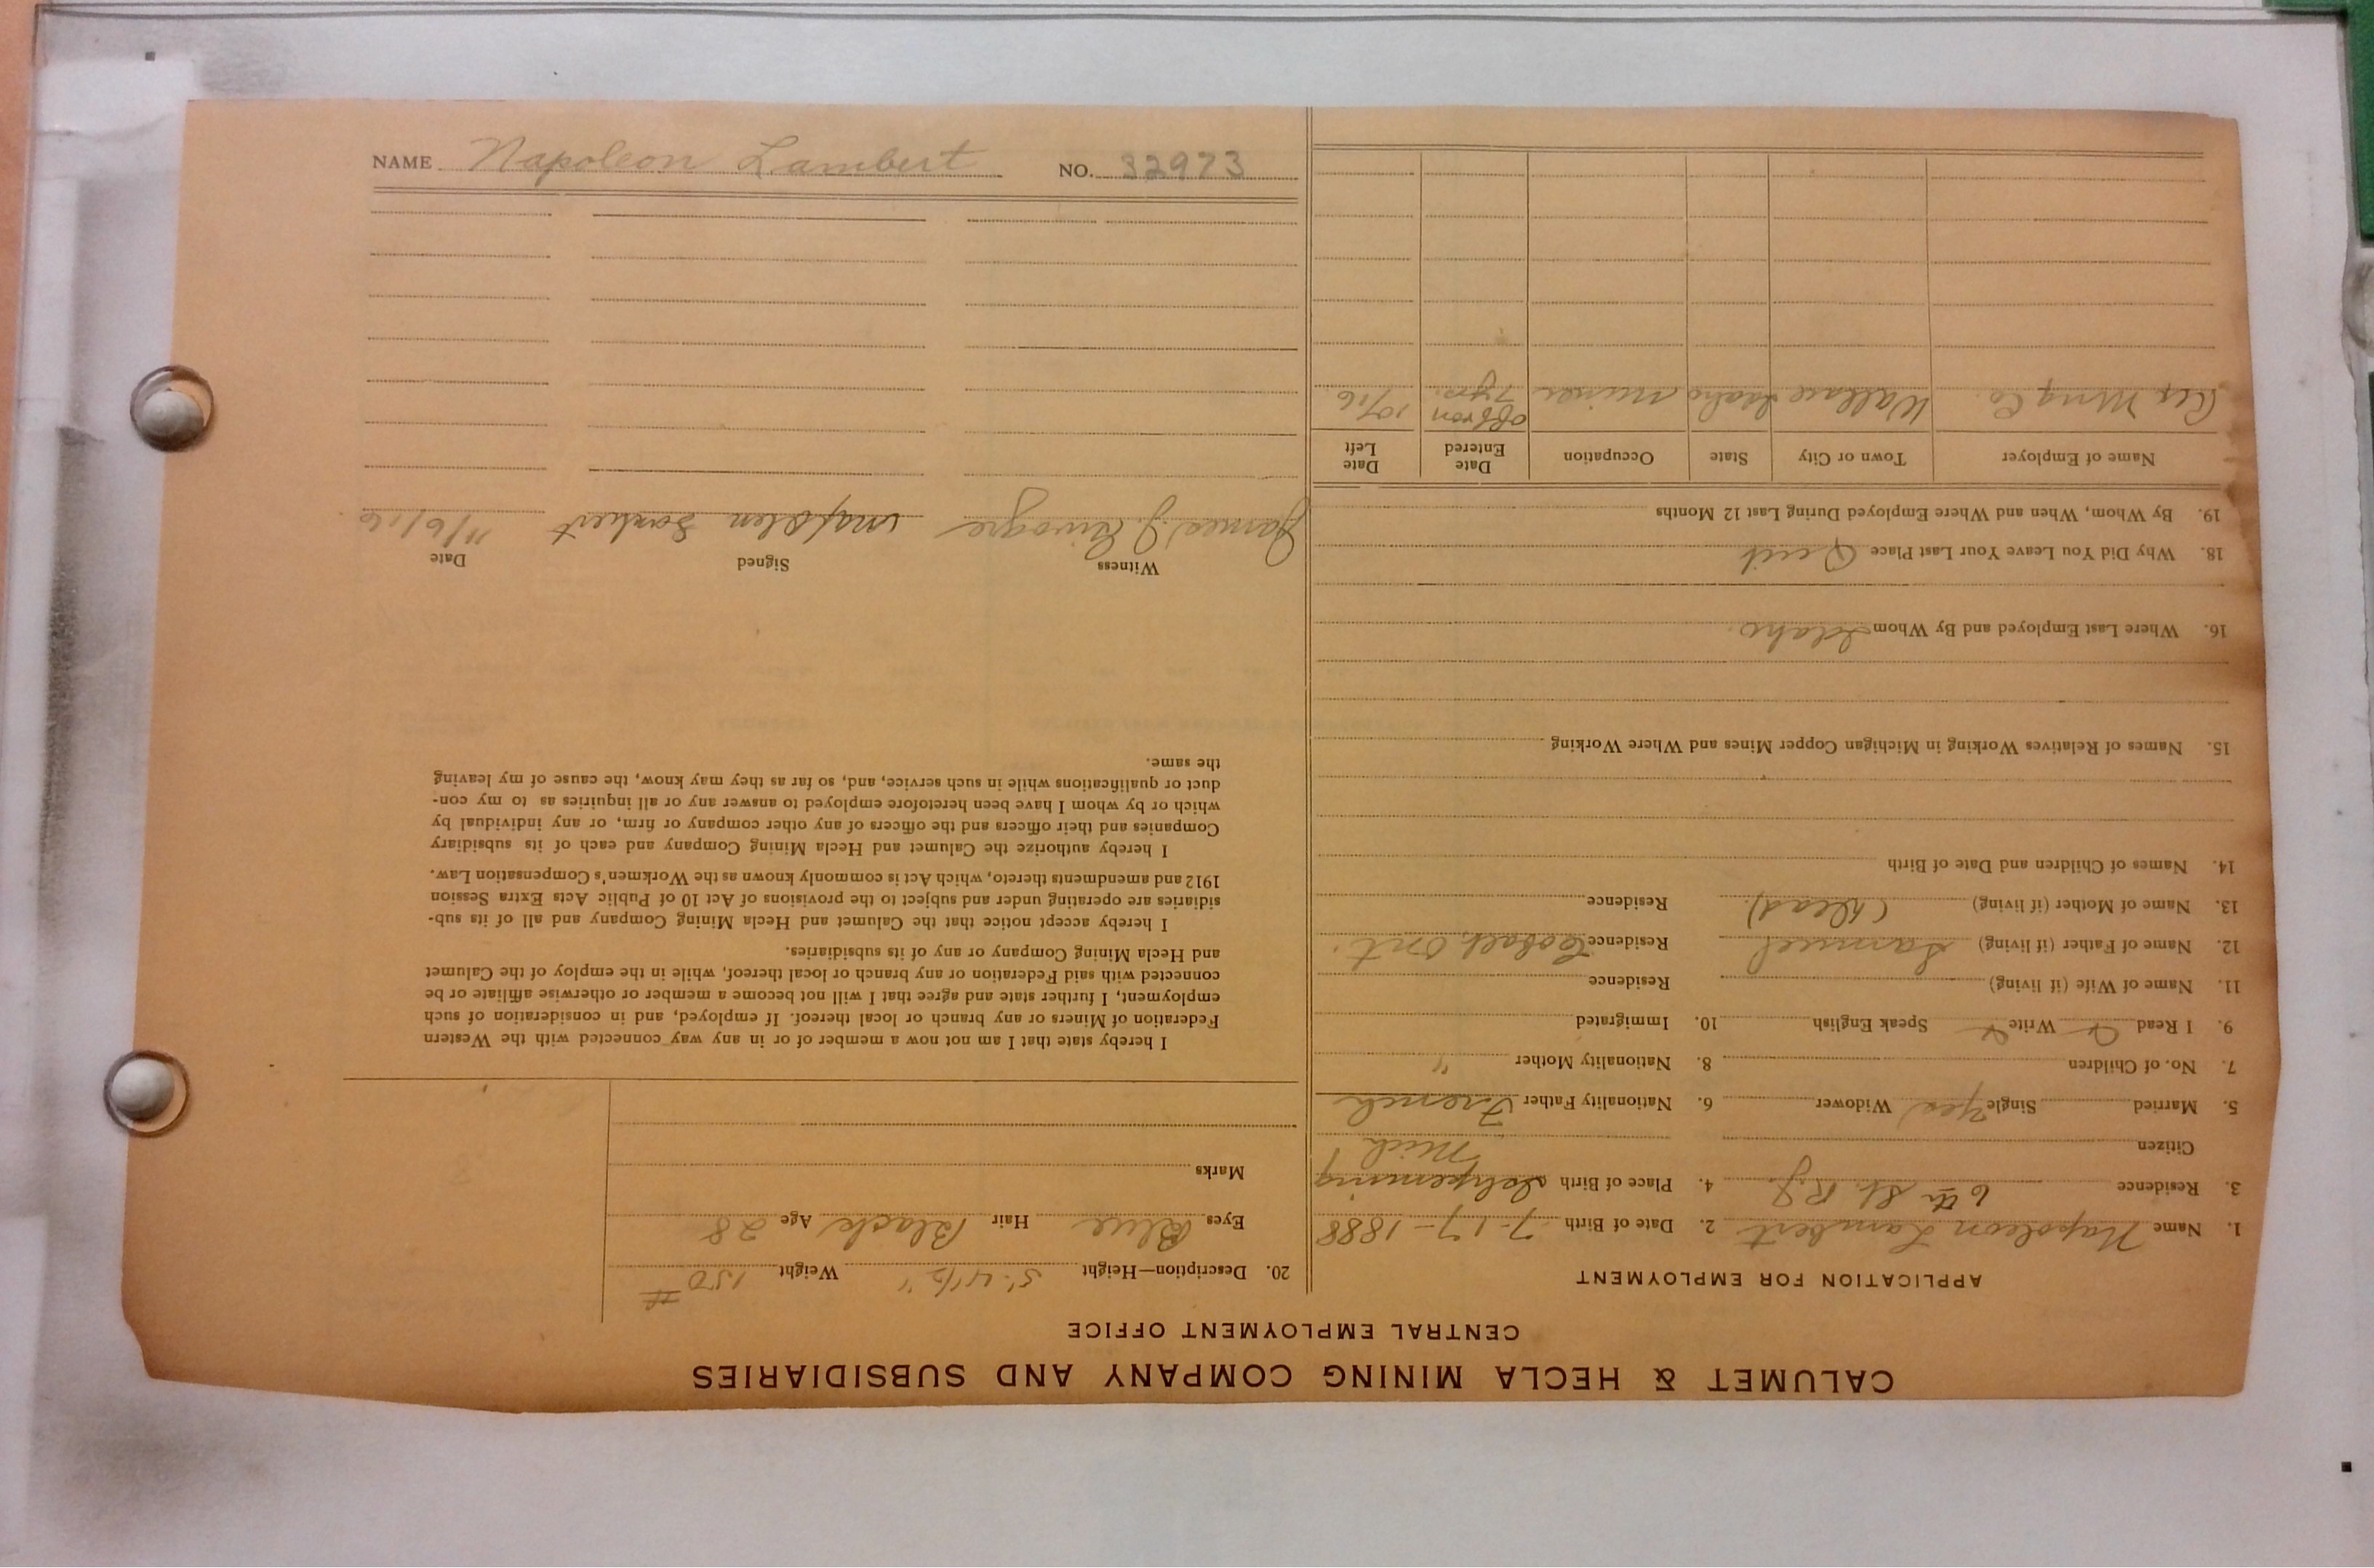 CALUMET & HECLA MINING COMPANY AND SUBSIDIARIES
CENTRAL EMPLOYMENT OFFICE
APPLICATION FOR EMPLOYMENT
1. Name Napoleon Lambert 2. Date of Birth 7-17-1888
3. Residence 6th St. 4. Place of Birth Ishpeming
Mich
Citizen
5. Married Single Yes Widower 6. Nationality Father French
7. No. of Children 8. Nationality Mother "
9. I Read Write Speak English 10. Immigrated
11. Name of Wife (if living) Residence
12. Name of Father (if living) Samuel Residence Cobalt, Ont.
13. Name of Mother (if living) (Dead) Residence
14. Names of Children and Date of Birth
15. Names of Relatives Working in Michigan Copper Mines and Where Working
16. Where Last Employed and By Whom Idaho.
18. Why Did You Leave Your Last Place Quit
19. By Whom, When and Where Employed During Last 12 Months
Name of Employer Town or City State Occupation Date Entered Date Left
Rex Mng Co. Wallace Idaho miner off & on 7 yrs. 10/16
20. Description—Height 5' 4 1/2" Weight 150 #
Eyes Blue Hair Black Age 28
Marks
I hereby state that I am not now a member of or in any way connected with the Western
Federation of Miners or any branch or local thereof. If employed, and in consideration of such
employment, I further state and agree that I will not become a member or otherwise affiliate or be
connected with said Federation or any branch or local thereof, while in the employ of the Calumet
and Hecla Mining Company or any of its subsidiaries.
I hereby accept notice that the Calumet and Hecla Mining Company and all of its sub-
sidiaries are operating under and subject to the provisions of Act 10 of Public Acts Extra Session
1912 and amendments thereto, which Act is commonly known as the Workmen's Compensation Law.
I hereby authorize the Calumet and Hecla Mining Company and each of its subsidiary
Companies and their officers and the officers of any other company or firm, or any individual by
which or by whom I have been heretofore employed to answer any or all inquiries as to my con-
duct or qualifications while in such service, and, so far as they may know, the cause of my leaving
the same.
Witness Signed Date
James J. napolen Lambert 11/6/16
NAME Napoleon Lambert NO. 32973